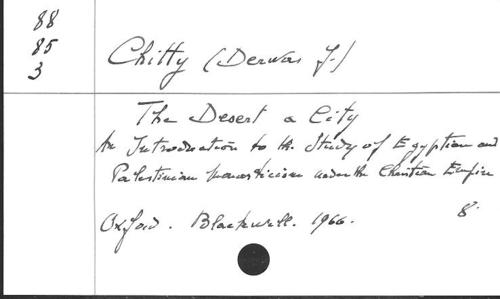 88
85
3
Chitty (Derwas J.)
The Desert a City
An Introduction to the Study of Egyptian and
Palestinian Monasticism under the Christian Empire
Oxford. Blackwell. 1966. 8.